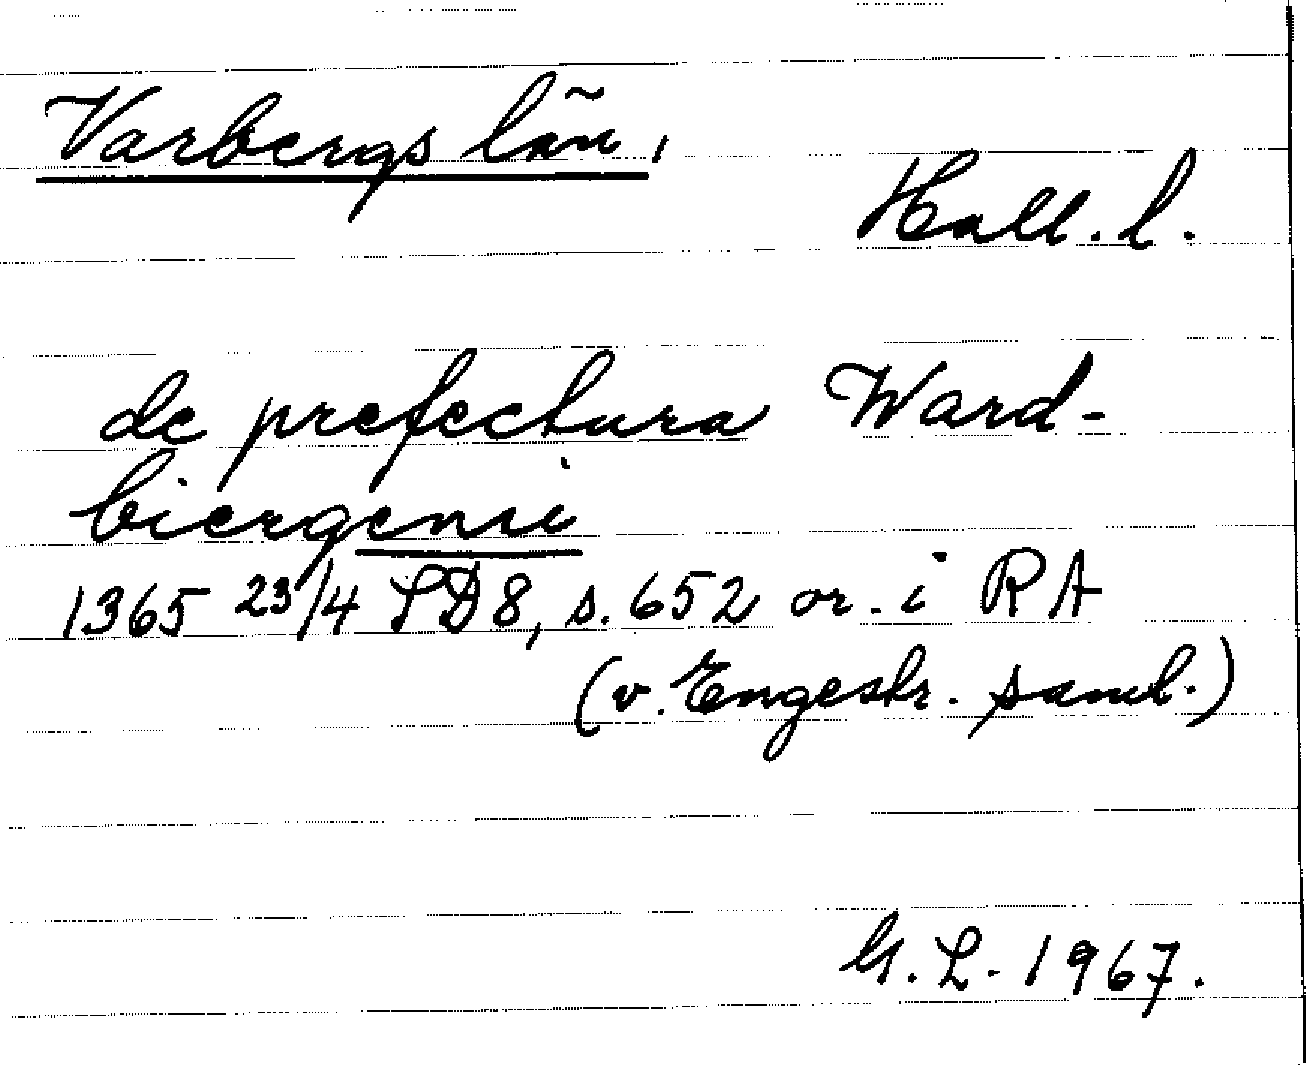 Varbergs län,
Hall. l.
de prefectura Ward-
biergensi
1365 23/4 SD8, s. 652 or. i RA
(v. Engestr. saml.)
G. L. 1967.